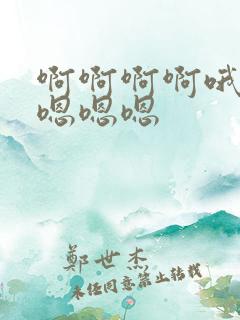 啊啊啊啊哦
嗯嗯嗯
鄭世杰
未经同意禁止转载